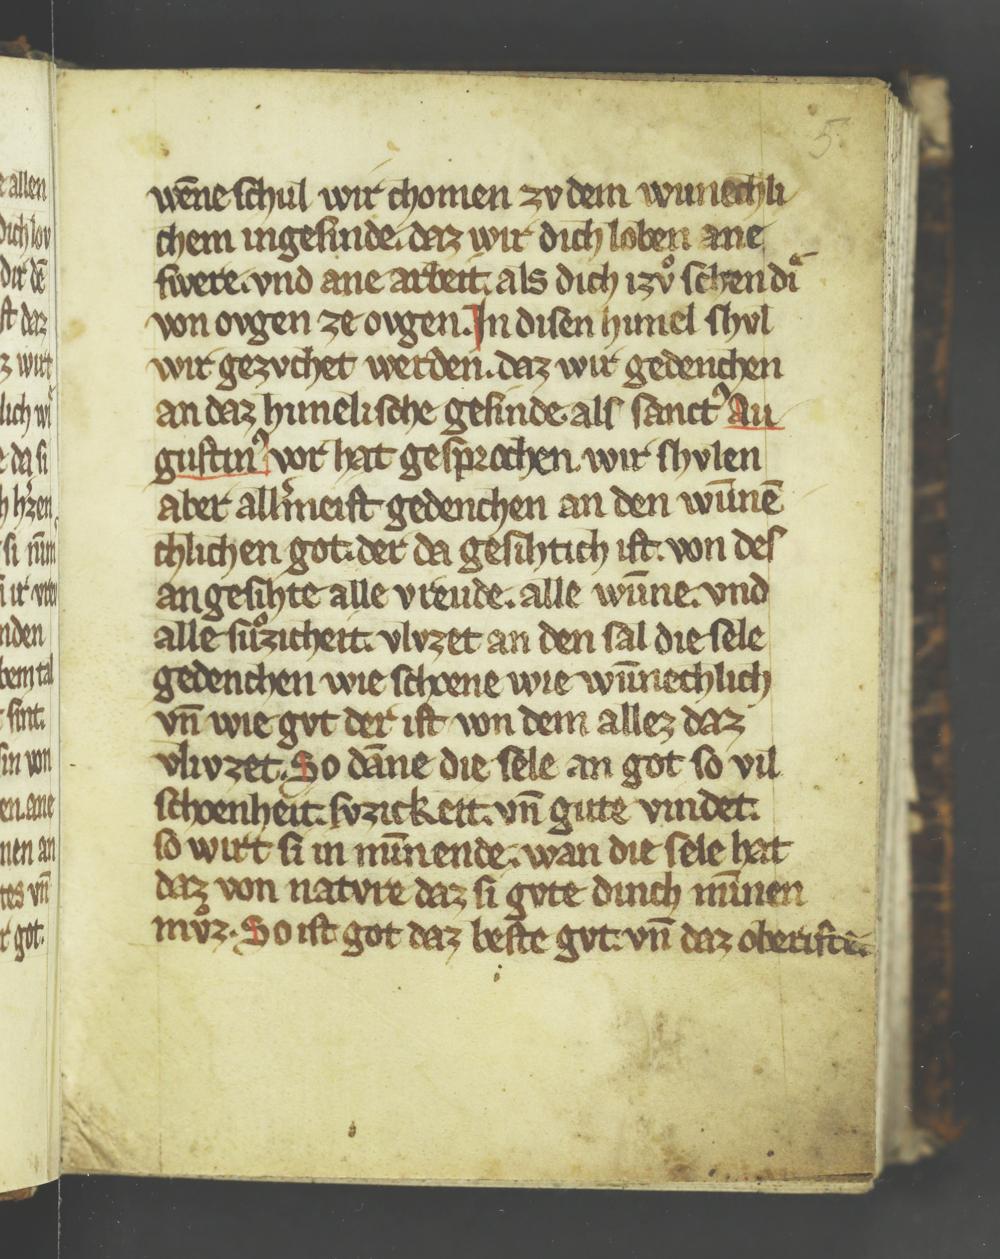 5
wēne schul wir chomen zv dem wunechli
chem ingesinde. daz wir dich loben ane
swere. vnd ane arbeit. als dich izvͦ sehen di
von ovgen ze ovgen. In disen himel shvl
wir gezvchet werden. daz wir gedenchen
an daz himelische gesinde. als sanct᾽ Au
gustin᾽ vor hat gesprochen. wir shvlen
aber allermeist gedenchen an den wūnē
chlichen got. der da gesihtich ist. von des
angesihte alle vreude. alle wūne. vnd
alle suͦzicheit. vlvzet an den sal die sele
gedenchen wie schoene wie wūnechlich
vn̄ wie gvt der ist von dem allez daz
vlivzet. So dāne die sele an got so vil
schoenheit. svzickeit. vn̄ gute vindet.
so wirt si in mīnende. wan die sele hat
daz von natvre daz si gvte durch mīnen
mvͦz. So ist got daz beste gvt. vn̄ daz oberiste.